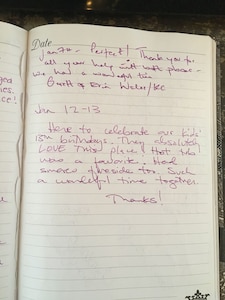 Date
Jan 7th - Perfect! Thank you for
all your help with
we had a wonderful time
Jan 12-13
Here to celebrate our kids'
birthdays. They absolutely
LOVE this place! Hot tub
was a favorite. Had
smores fireside too. Such
a wonderful time together.
Thanks!